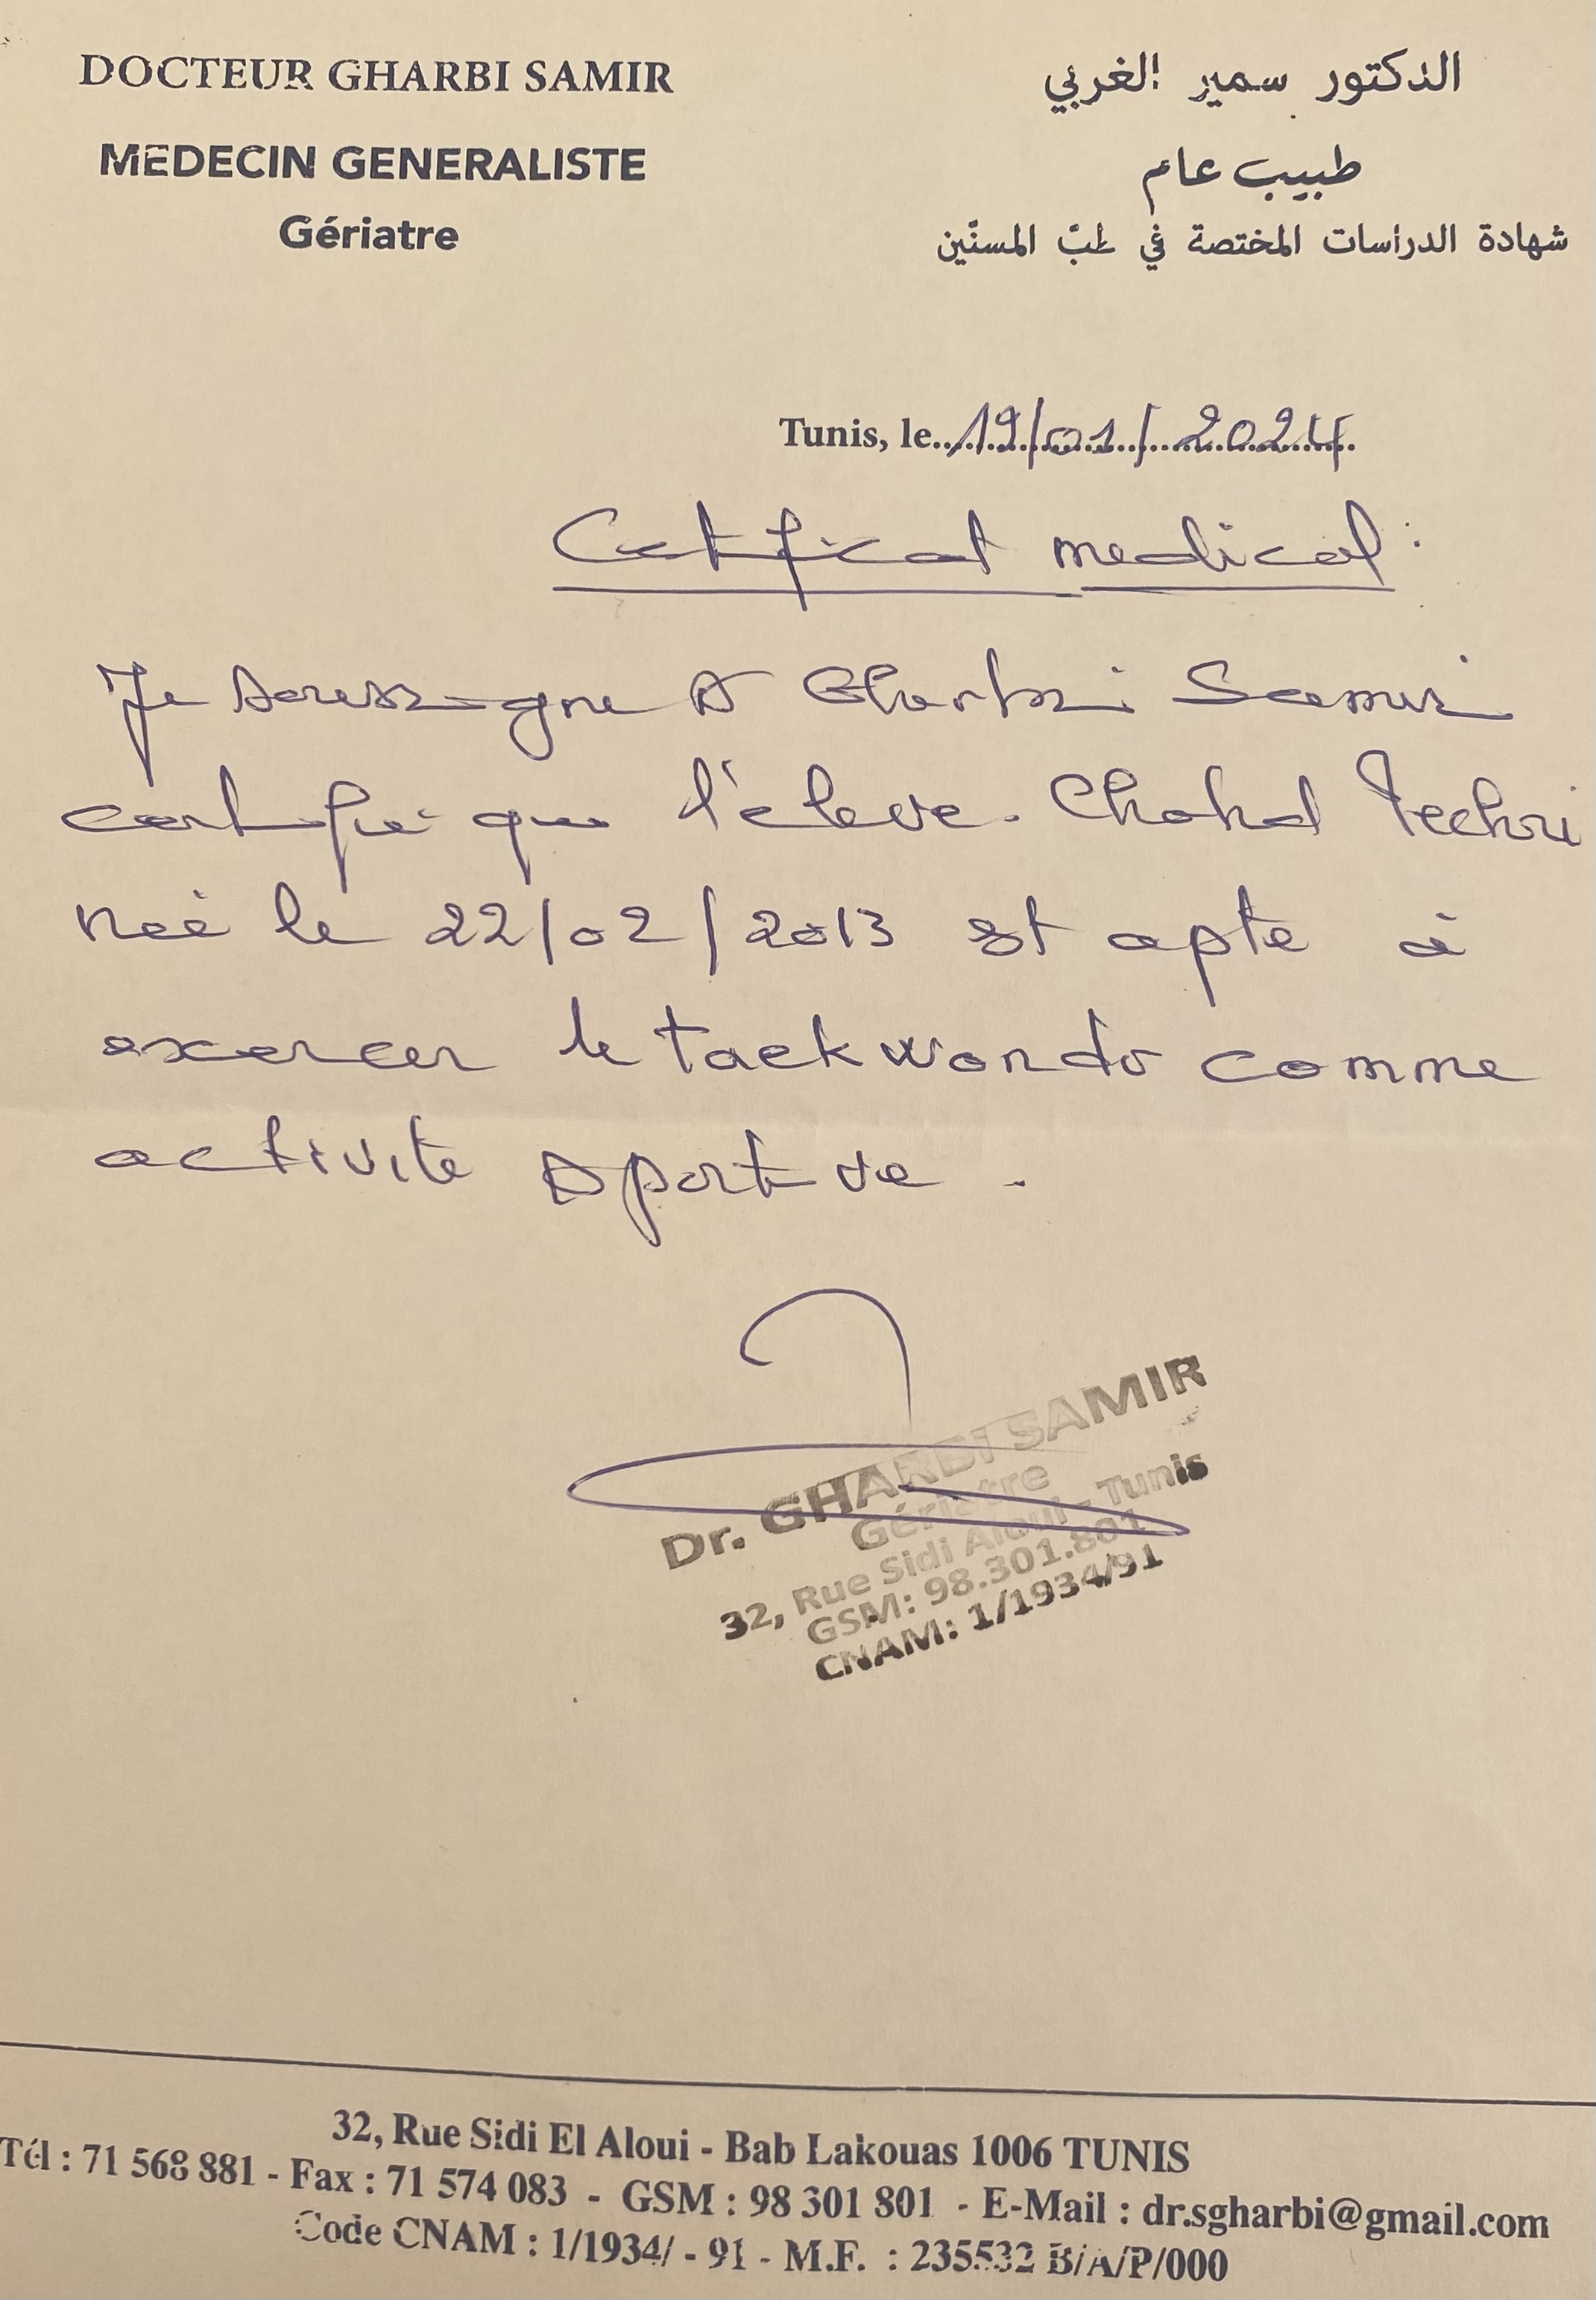 DOCTEUR GHARBI SAMIR
MEDECIN GENERALISTE
Gériatre
الدكتور سمير الغربي
طبيب عام
شهادة الدراسات المختصة في طبّ المسنّين
Tunis, le 19/01/2024
Certificat medical :
Je soussigne Dr Gharbi Samir
certifie que l'eleve. Chahd
née le 22/02/2013 est apte à
exercer le taekwondo comme
activite sportive.
Dr. GHARBI SAMIR
Gériatre
32, Rue Sidi Aloui - Tunis
GSM: 98.301.801
CNAM: 1/1934/91
32, Rue Sidi El Aloui - Bab Lakouas 1006 TUNIS
Tél : 71 568 881 - Fax : 71 574 083 - GSM : 98 301 801 - E-Mail : dr.sgharbi@gmail.com
Code CNAM : 1/1934/ - 91 - M.F. : 235532 B/A/P/000